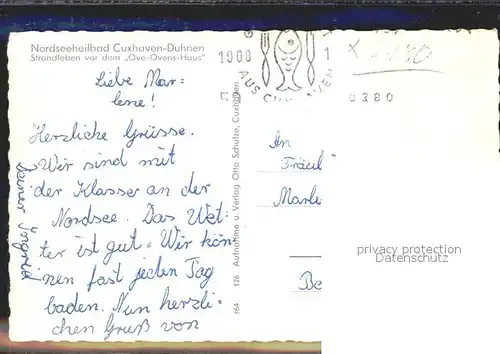 Nordseeheilbad Cuxhaven-Duhnen
Strandleben vor dem „Ove-Ovens-Haus"
Liebe Mar=
lene!
Herzliche Grüsse.
Wir sind mit
der Klasse an der
Nordsee. Das Wet-
ter ist gut. Wir kön-
nen fast jeden Tag
baden. Nun herzli-
chen Gruß von
Deiner Ingrid
r64 126 Aufnahme u. Verlag Otto Schulze, Cuxhaven
AUS CUXHAVEN
0380
An
Fräul
Marle
Be
privacy protection
Datenschutz